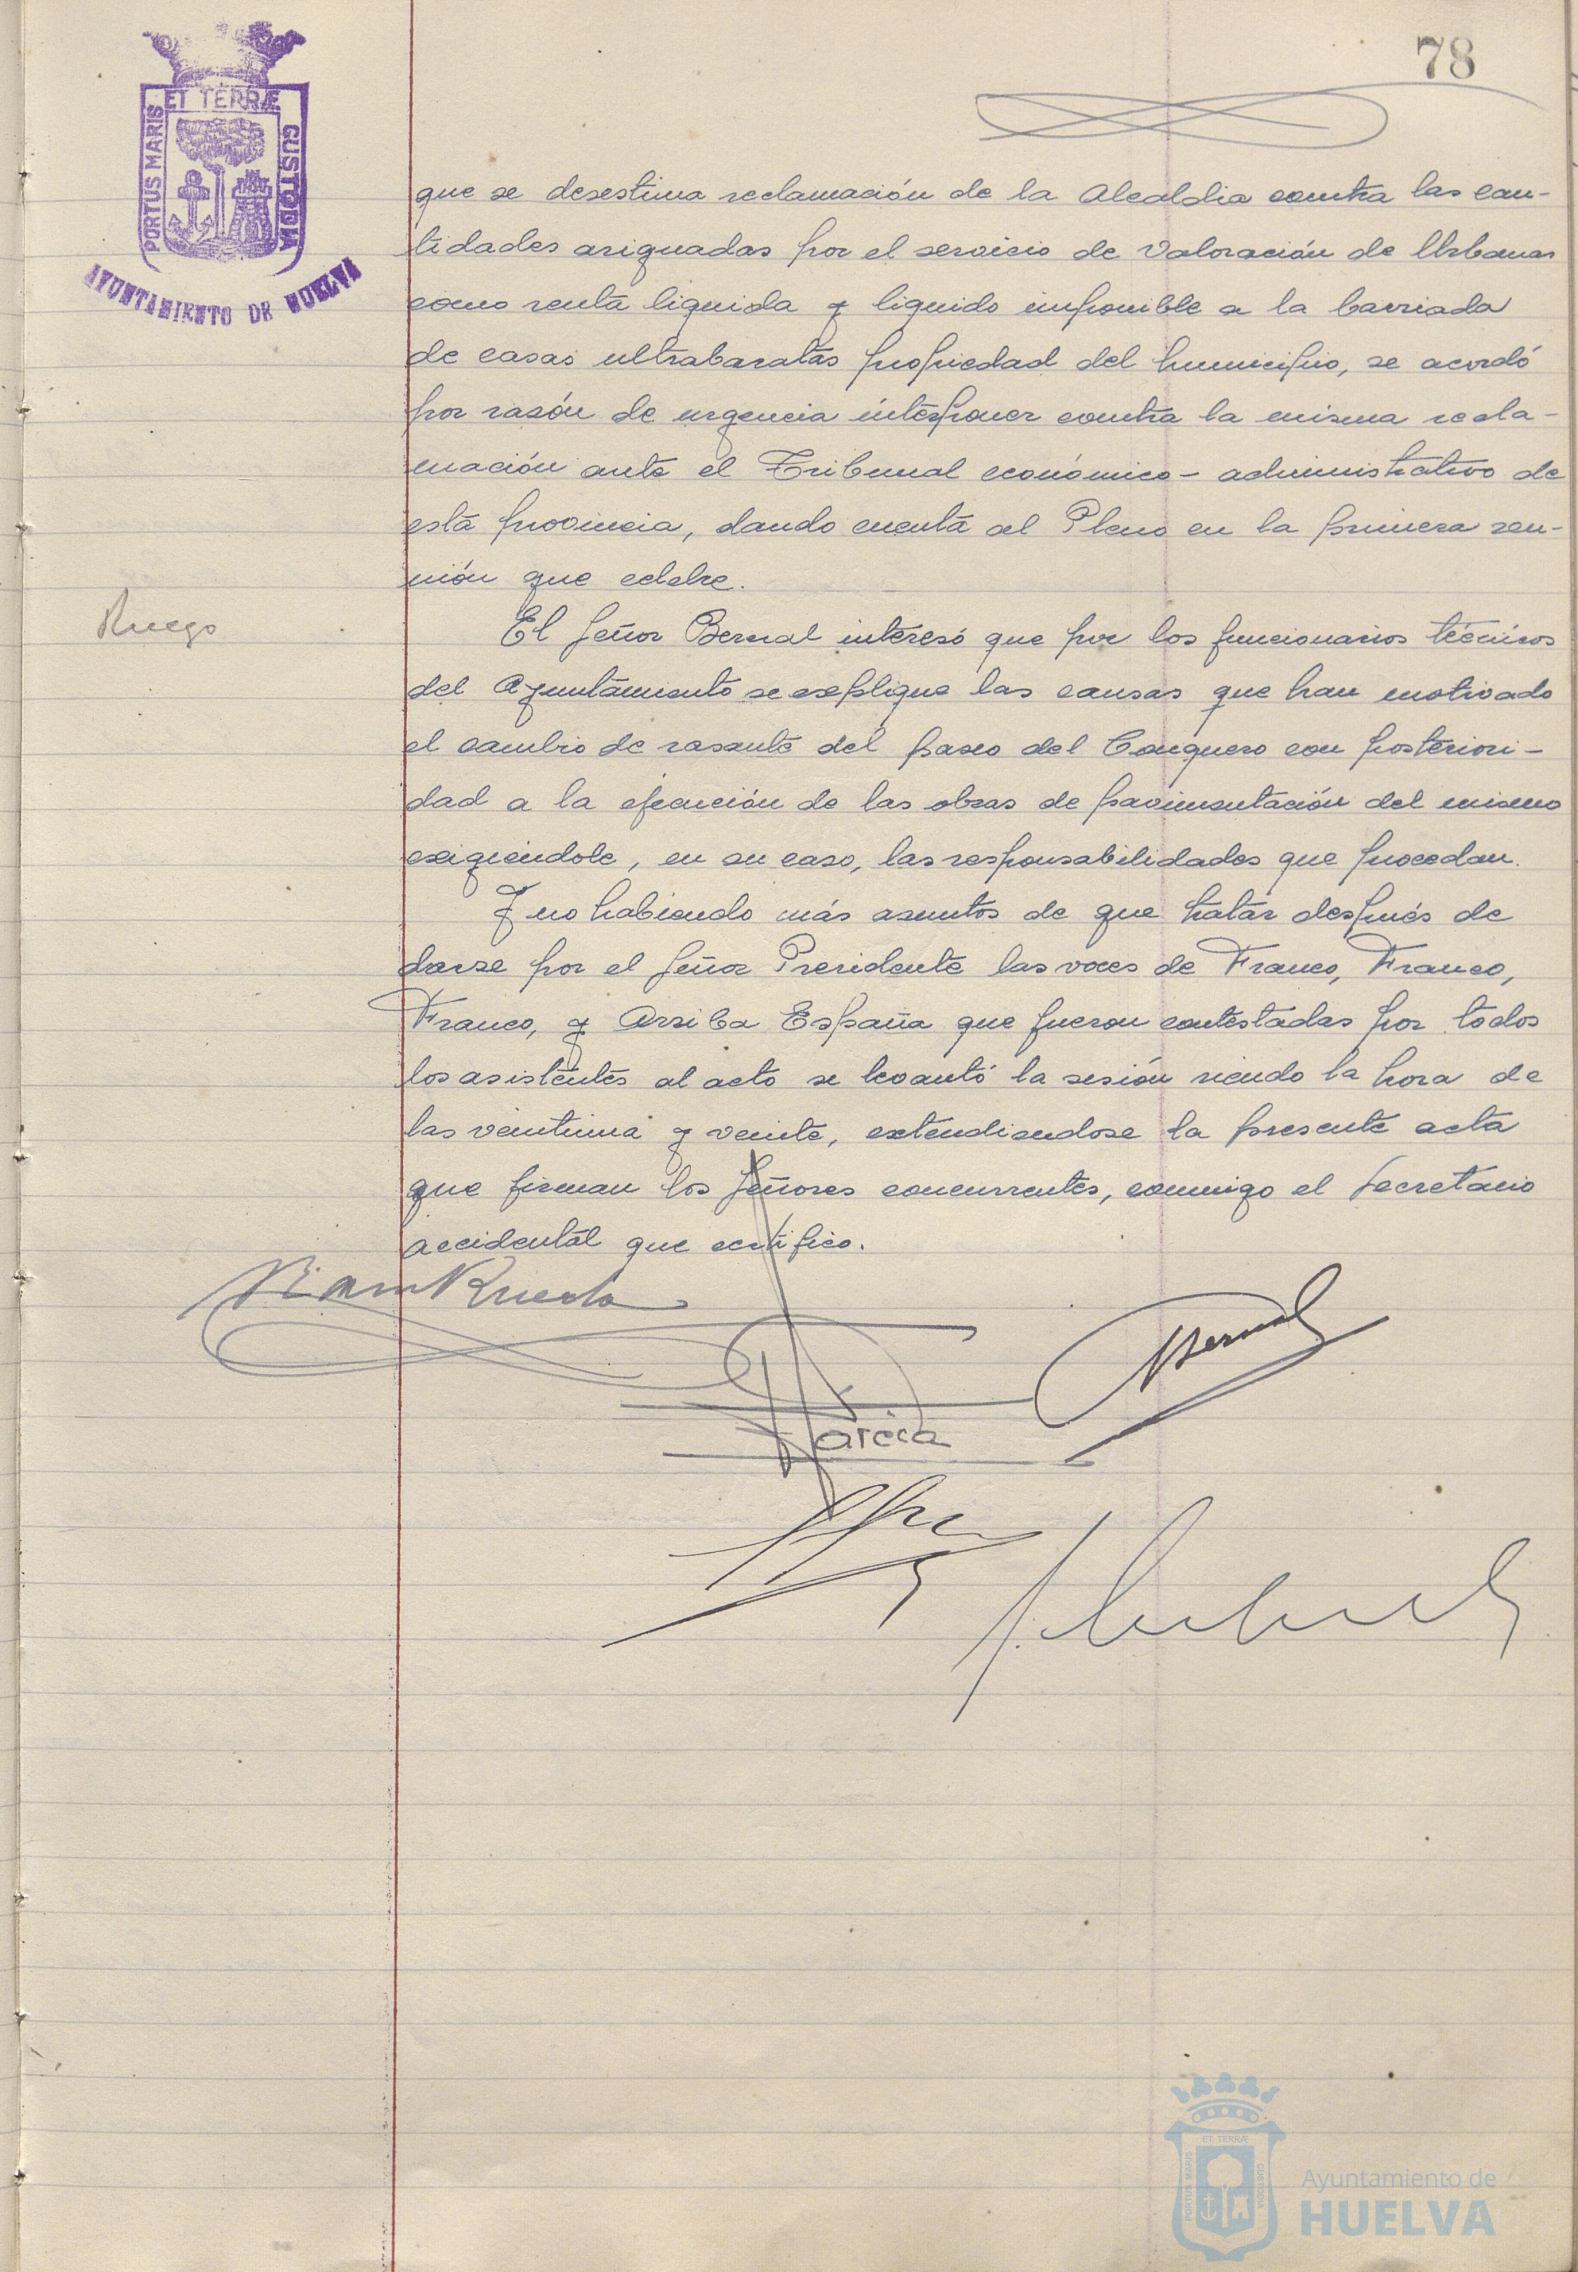 78
ET TERRÆ
PORTUS MARIS
CUSTODIA
AYUNTAMIENTO DE HUELVA
que se desestima reclamación de la Alcaldia contra las can-
tidades asignadas por el servicio de Valoración de Urbanas
como renta liquida y liquido imponible a la barriada
de casas ultrabaratas propiedad del municipio, se acordó
por razón de urgencia interponer contra la misma recla-
mación ante el Tribunal económico-administrativo de
esta provincia, dando cuenta al Pleno en la primera reu-
nión que celebre.
Ruego
El Señor Bernal interesó que por los funcionarios técnicos
del Ayuntamiento se explique las causas que han motivado
el cambio de rasante del paseo del Conquero con posteriori-
dad a la ejecución de las obras de pavimentación del mismo
exigiendole, en su caso, las responsabilidades que procedan.
Y no habiendo más asuntos de que tratar después de
darse por el Señor Presidente las voces de Franco, Franco,
Franco, y Arriba España que fueron contestadas por todos
los asistentes al acto se levantó la sesión siendo la hora de
las veintiuna y veinte, extendiendose la presente acta
que firman los Señores concurrentes, conmigo el Secretario
accidental que certifico.
Rueda
Bernal
García
ET TERRÆ
PORTUS MARIS
CUSTODIA
Ayuntamiento de
HUELVA